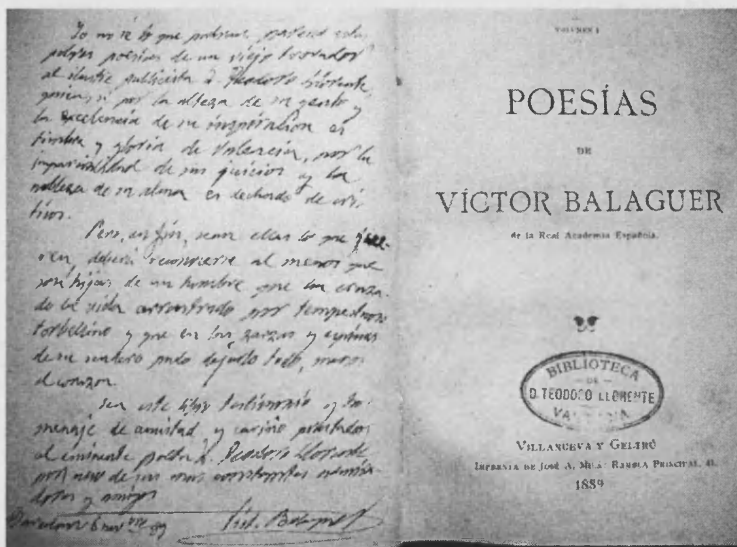 Yo no sé lo que podrán parecer estas
pobres poesías de un viejo trovador
al ilustre publicista D. Teodoro Llorente,
quien, si por la alteza de su genio y
la excelencia de su inspiración es
timbre y gloria de Valencia, por la
imparcialidad de sus juicios y la
nobleza de su alma es dechado de crí-
ticos.
Pero, en fin, sean ellas lo que quie-
ran, deberá reconocerse al menos que
son hijas de un hombre que ha cruza-
do la vida arrastrado por tempestuoso
torbellino y que en las zarzas y espinas
de su sendero pudo dejarlo todo, menos
el corazón.
Sea este libro testimonio y ho-
menaje de amistad y cariño prestados
al eminente poeta D. Teodoro Llorente
por uno de sus mas constantes admira-
dores y amigos
Barcelona 6 nov bre 89 Vict. Balaguer
VOLUMEN I
POESÍAS
DE
VÍCTOR BALAGUER
de la Real Academia Española.
BIBLIOTECA
DE
D. TEODORO LLORENTE
VALENCIA
VILLANUEVA Y GELTRÚ
IMPRENTA DE JOSÉ A. MILÁ: RAMBLA PRINCIPAL, 41.
1889